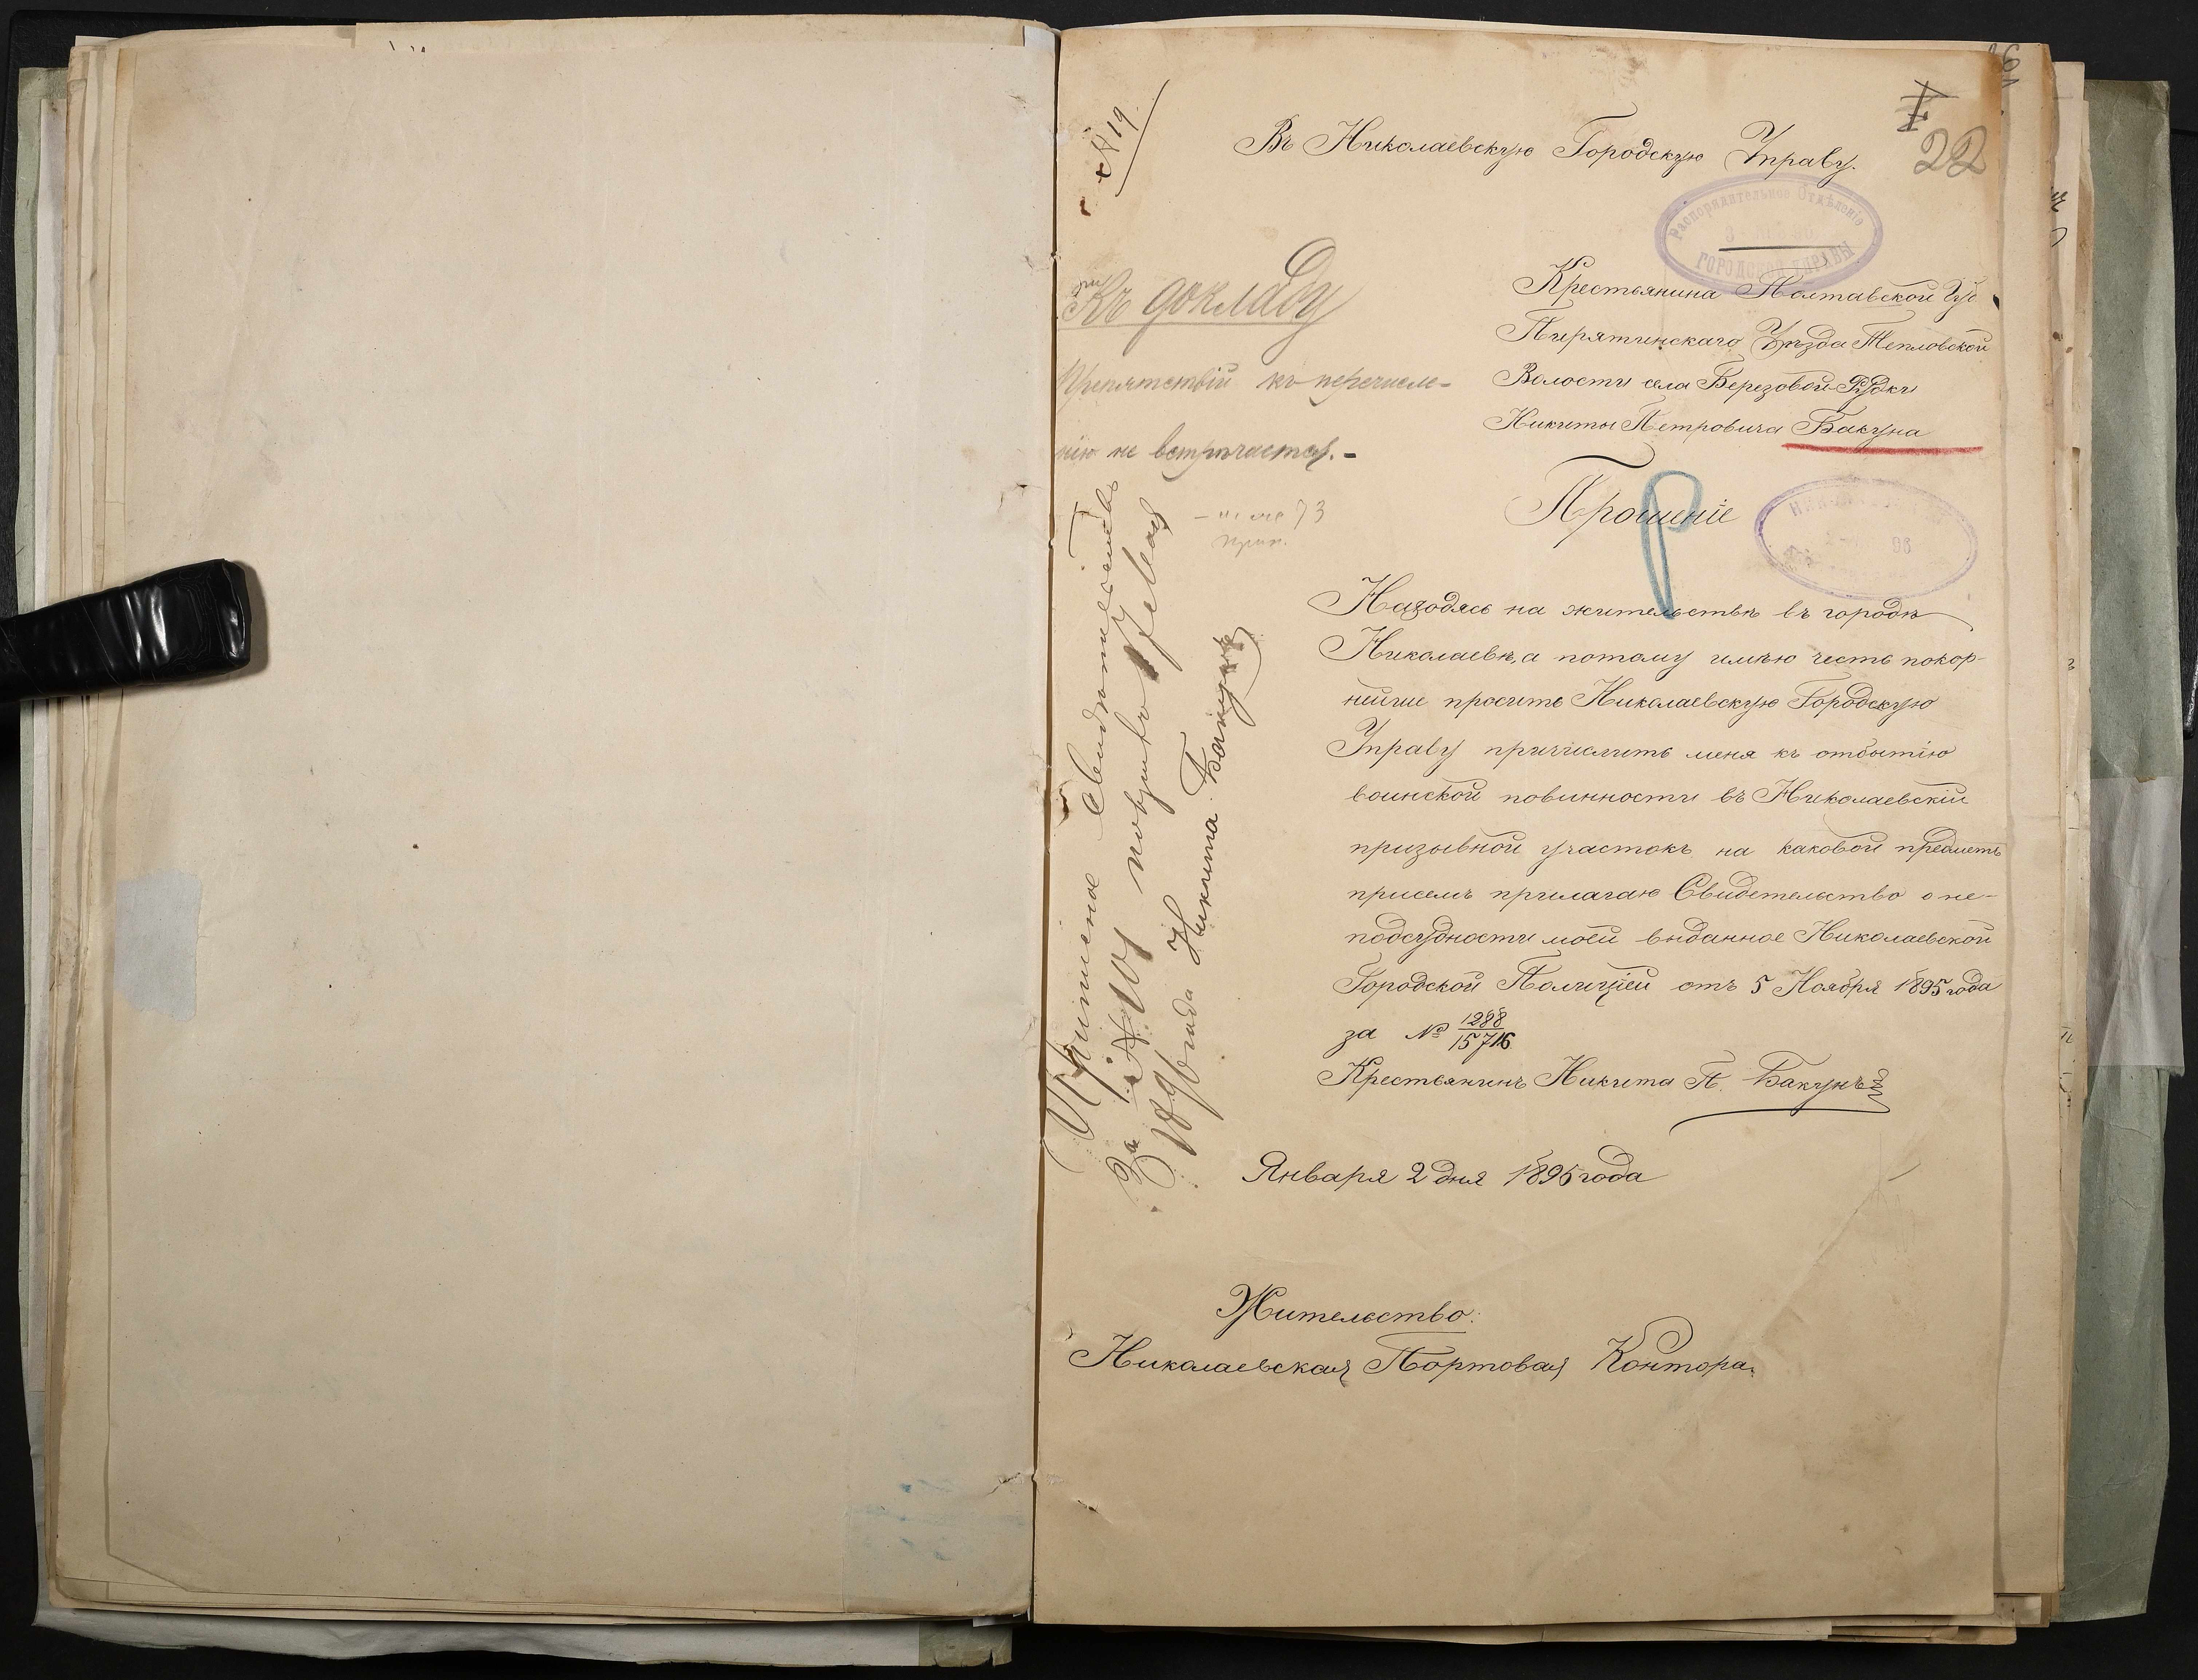 № 19
22
Въ Николаевскую Городскую Управу.
Распорядительное Отдѣленіе
ГОРОДСКОЙ УПРАВЫ
Крестьянина Полтавской Губ
Пирятинскаго Уѣзда Тепловской
Волости села Березовой-Рудки
Никиты Петровича Бакуна
Къ докладу
Препятствій къ перечисле-
нію не встрѣчается.-
73
Прошеніе
96
Находясь на жительствѣ въ городѣ
Николаевѣ, а потому имѣю честь покор-
нийше просить Николаевскую Городскую
Управу причислить меня къ отбытію
воинской повинности въ Николаевскій
призывной участокъ на каковой предметъ
присемъ прилагаю Свидетельство о не-
подсудности моей выданное Николаевской
Городской Полиціей отъ 5 Ноября 1895 года
за № 1288
15716
Крестьянинъ Никита П. Бакунъ
Января 2 дня 1896 года
Жительство:
Николаевская Портовая Контора.
свидѣтельство
За № 101
1896 года Никита Бакунъ